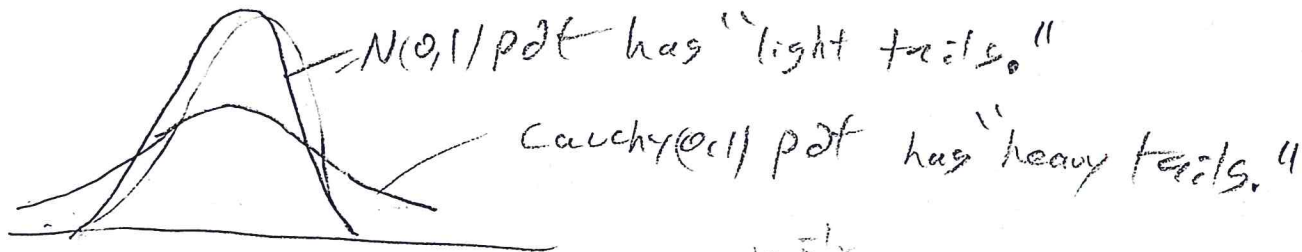 N(0,1) pdf has "light tails."
Cauchy(0,1) pdf has "heavy tails."